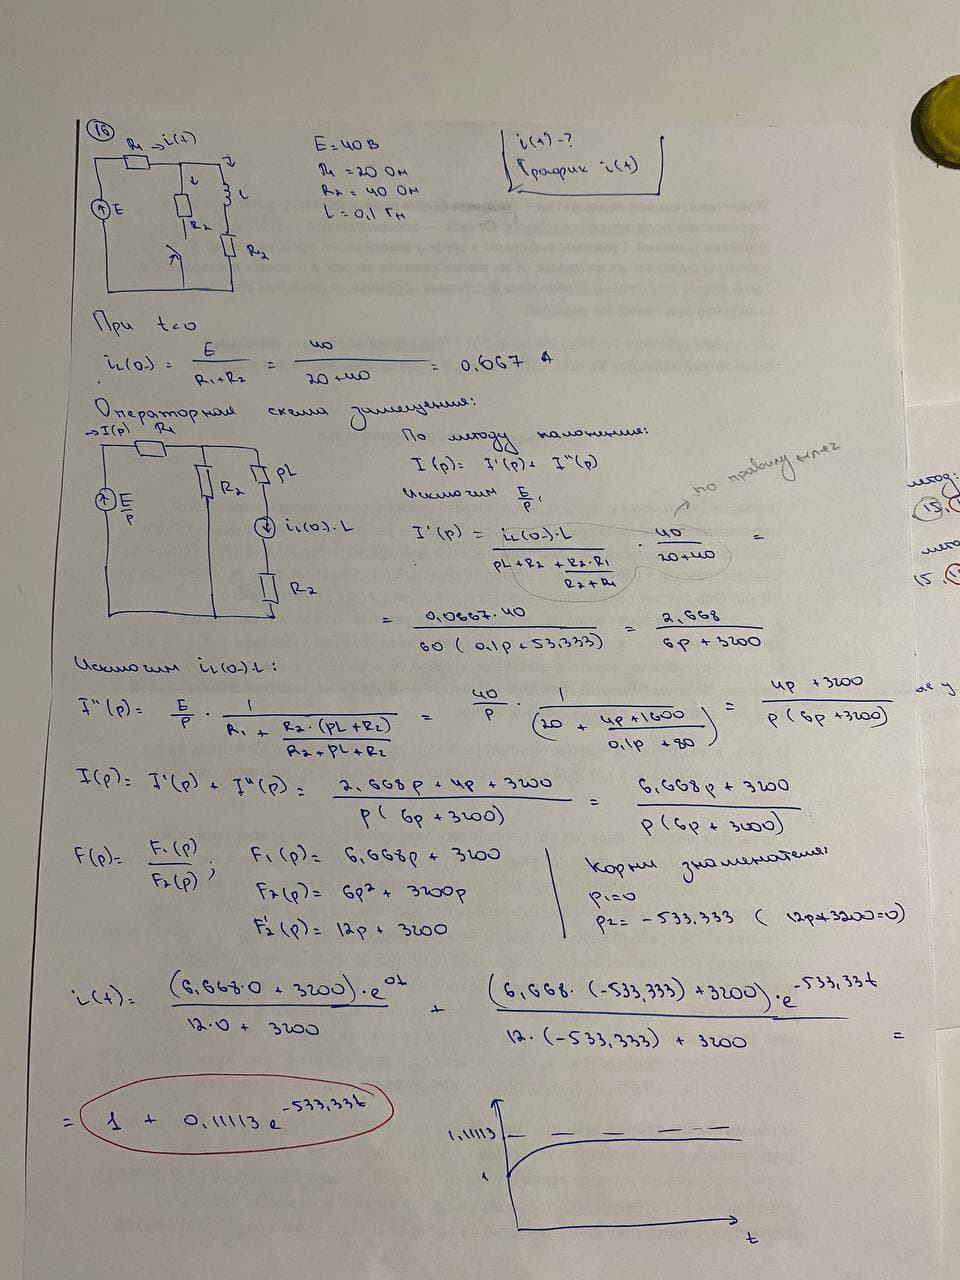 16
R₁ →i(t)
E
R₂
L
R₂
E = 40 В
R₁ = 20 Ом
R₂ = 40 Ом
L = 0,1 Гн
i(t) - ?
График i(t)
При t<0
iL(0-) = E / (R₁+R₂) = 40 / (20+40) = 0.667 А
Операторная схема замещения:
→I(p) R₁
E/p
R₂
pL
iL(0-)·L
R₂
По методу наложения:
I(p) = I'(p) + I''(p)
Исключим E/p,
по правилу плеч
I'(p) = iL(0-)·L / (pL + R₂ + R₂·R₁/(R₂+R₁)) · 40/(20+40) =
= 0,0667·40 / 60(0,1p + 53,333) = 2,668 / (6p + 3200)
Исключим iL(0-)·L:
I''(p) = E/p · 1 / (R₁ + R₂·(pL+R₂)/(R₂+pL+R₂)) = 40/p · 1 / (20 + (4p+1600)/(0.1p+80)) = (4p + 3200) / p(6p+3200)
I(p) = I'(p) + I''(p) = (2,668p + 4p + 3200) / p(6p + 3200) = (6,668p + 3200) / p(6p + 3200)
F(p) = F₁(p)/F₂(p) ;
F₁(p) = 6,668p + 3200
F₂(p) = 6p² + 3200p
F₂'(p) = 12p + 3200
Корни знаменателя:
p₁=0
p₂ = -533,333 ( 12p+3200=0)
i(t) = (6,668·0 + 3200)·e^0t / (12·0 + 3200) + (6,668·(-533,333) + 3200)·e^-533,33t / (12·(-533,333) + 3200) =
= 1 + 0,11113 e^-533,33t
1,11113
1
t
15.
15.